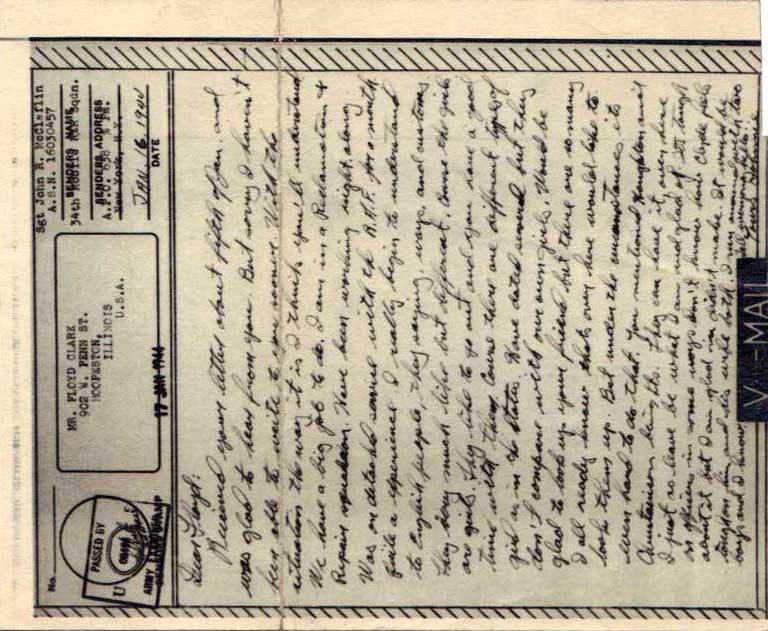 No.
PASSED BY
U
ARMY EXAMINER
MR. FLOYD CLARK
902 W. PENN ST.
HOOPESTON,
ILLINOIS
U.S.A.
17 JAN 1944
Sgt John R.
A.S.N. 16030457
SENDERS NAME
34th Sqdn.
SENDERS ADDRESS
A.P.O. 638 % P.M.
New York, N.Y.
JAN 16, 1944
DATE
Dear Floyd:
Received your letter about fifth of Jan. and
was glad to hear from you. But sorry I haven't
been able to write to you sooner. With the
situation the way it is I think you'll understand
We have a big job to do. I am in a Reclamation &
Repair squadron. Have been working right along
Was on detached service with the R.A.F. for a month
Quite a experience. I really begin to understand
the English people, they saying, ways, and customs
They very much like but different. Course the girls
are girls. They like to go out and you have a good
time with them. Course there are different types of
girls as in the States. Have dated several but they
don't compare with our own girls. Would be
glad to look up your friend but there are so many
I all ready know that's over here would like to
look them up. But under the circumstances its
even hard to do that. You mentioned and
being Lts. They can have it, over here
I just as leave be what I am and glad of it. tough
on officers in some ways. don't know how Clyde feels
about it but I am glad I didn't make. It would be
him and his wife both. I
boys and I know
V-MAIL